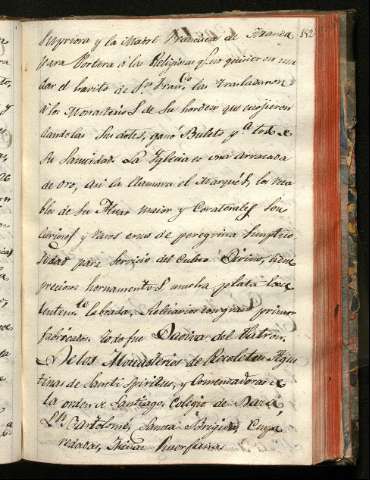 Supriora y la Madre Francisca de Aranda 152
para Portera á las Religiosas q.e no quisieron mu
dar el havito de S.n Fran.co las trasladaron
á los Monasterios de su horden que escojieron
dandolas sus dotes, ganó Buleto p.a todo de
su Santidad. La Iglesia es una arracada
de oro, asi la llamava el Marqués, los reta
blos de su Altar maior y Coraterales son
curiosos y unos de peregrina sumptuo
sidad para servicio del Culto Divino, tiene
preciosos hornamentos, mucha plata
labrada, Relicarios con gran primor
fabricados, todo fue Dadiva del Patron.
De los Monasterios de Recoletas Agus
tinas de Sancti Spiritus, y Comendadoras de
la orden de Santiago, Colegio de
S.n Bartolomé, Sancta Brigida, Empa
redadas, Niñas Huerfanas